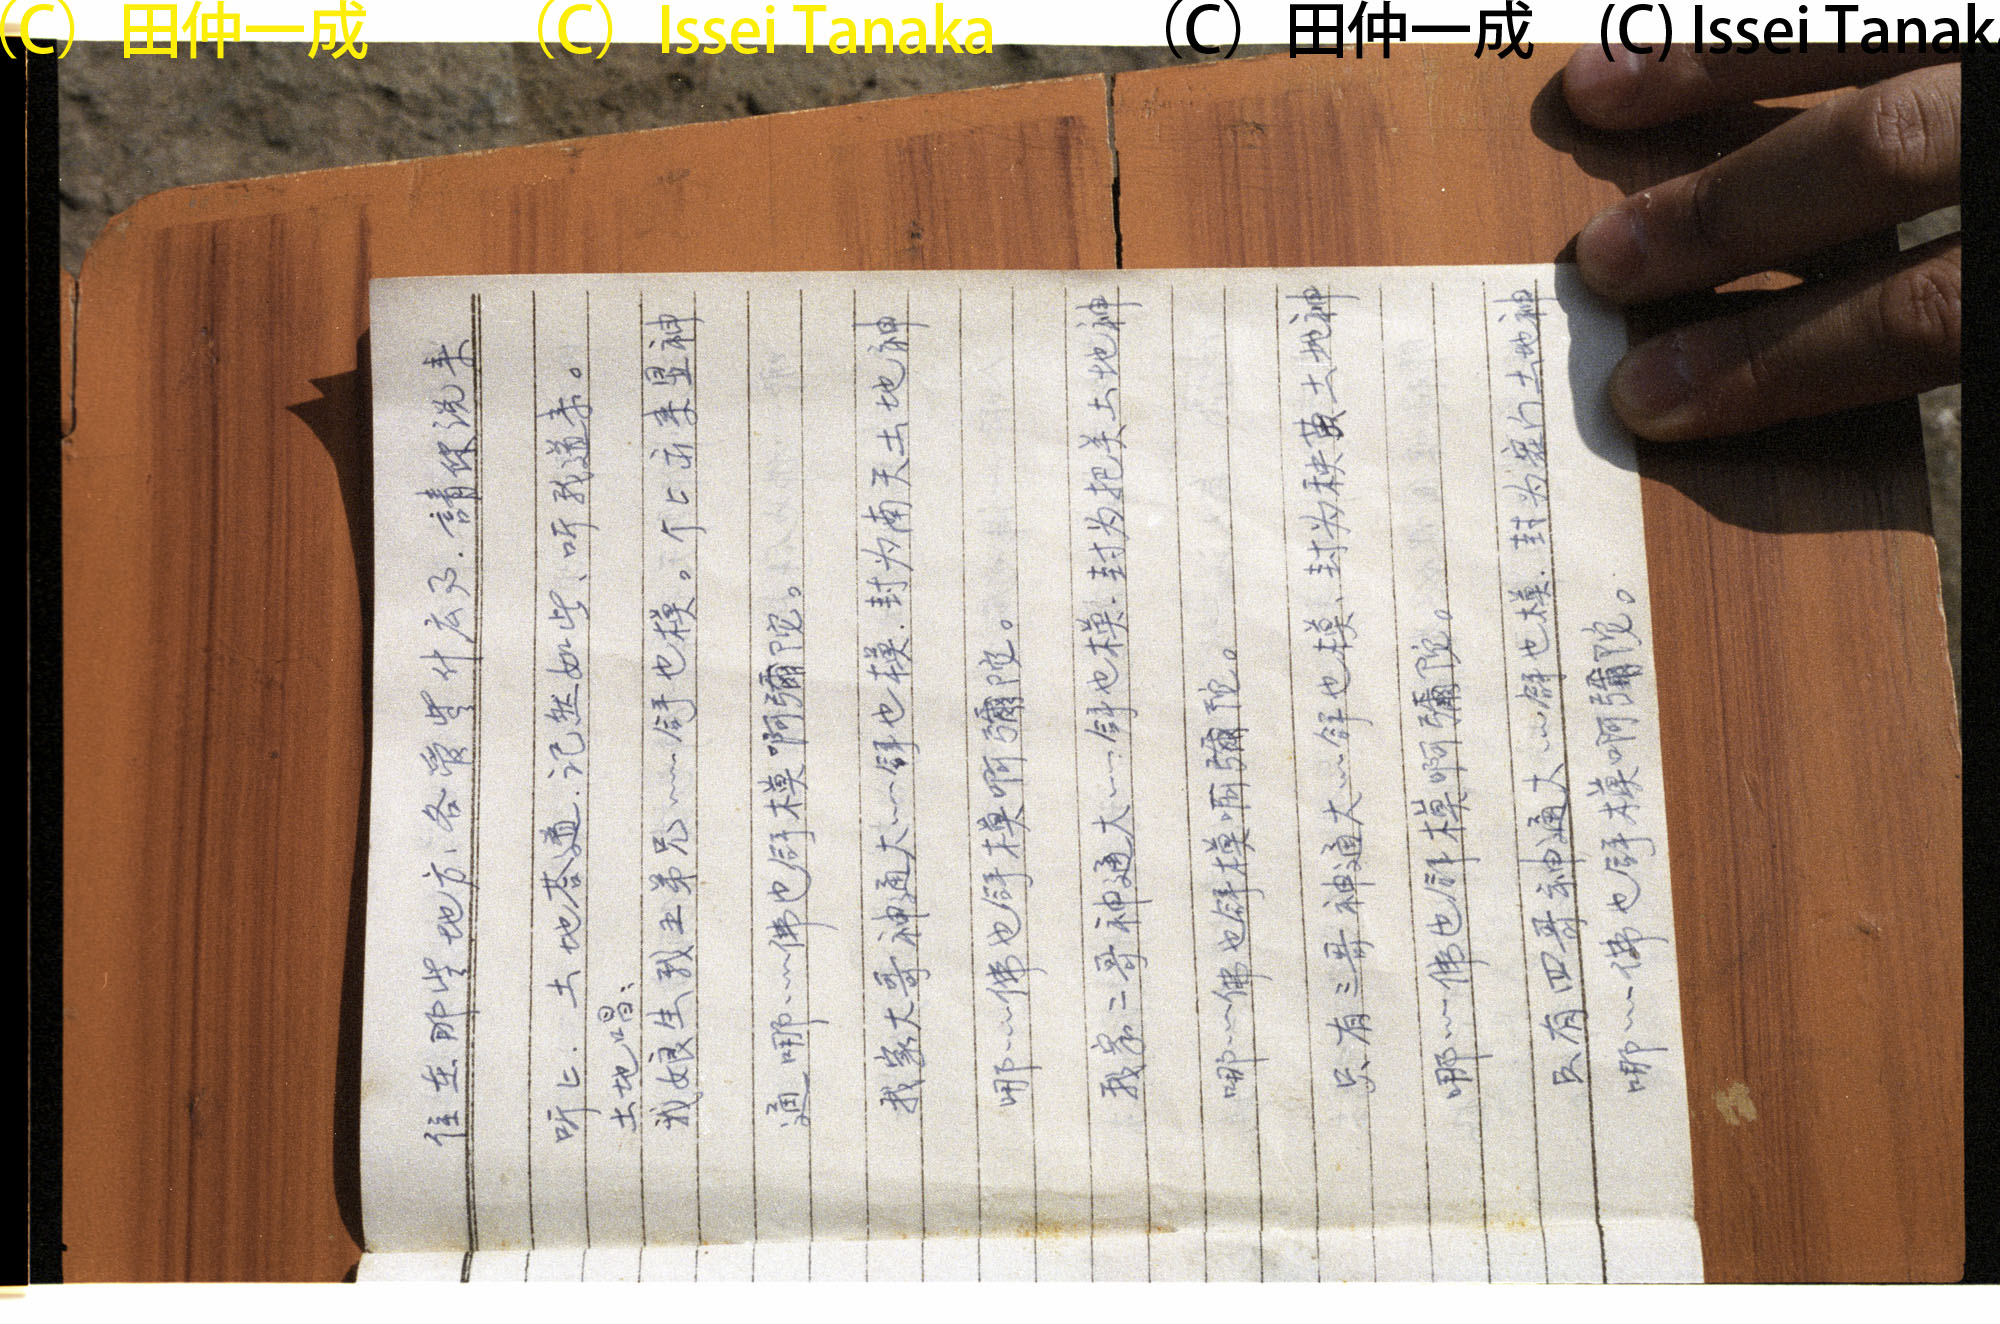 (C) 田仲一成 (C) Issei Tanaka (C) 田仲一成 (C) Issei Tanaka
住在那些地方、各爱些什么名.請你说来
听匕.土地答道.记然如此、听我道来。
土地唱:
我娘生我五弟兄~~~舒也模。个匕所来显神
通哪~~~佛也舒模啊彌陀。
我家大哥神通大~~~舒也模.封为南天土地神
哪~~~佛也舒模啊彌陀。
我家二哥神通大~~~舒也模.封为把关土地神
哪~~~佛也舒模啊彌陀。
只有三哥神通大~~~舒也模、封为秧苗土地神
哪~~~佛也舒模啊彌陀。
只有四哥神通大~~~舒也模.封为寨门土地神
哪~~~佛也舒模啊彌陀。